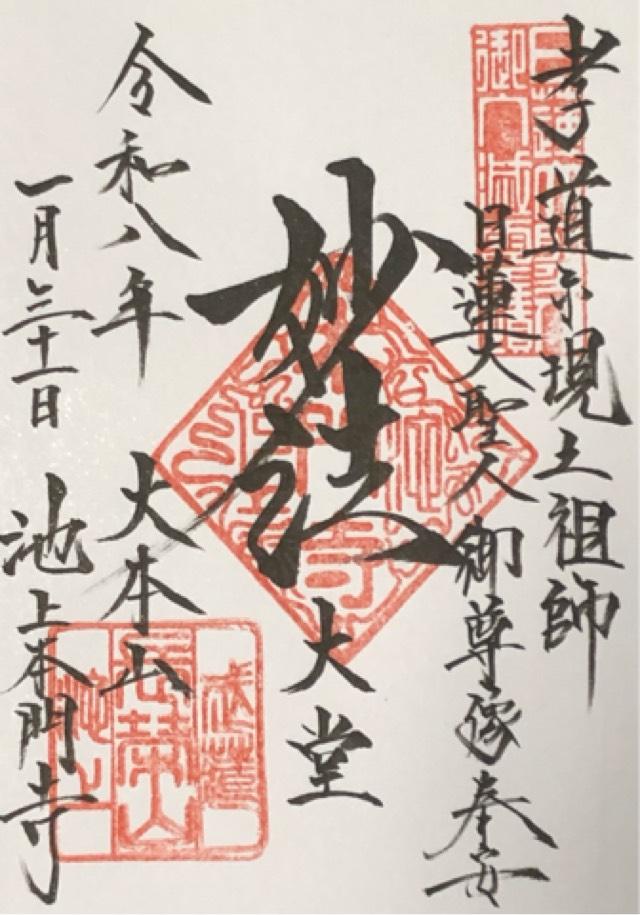 孝道示現大祖師
日蓮大聖人御尊像奉安
妙法
大堂
令和八年
一月三十一日
大本山
池上本門寺
長榮山